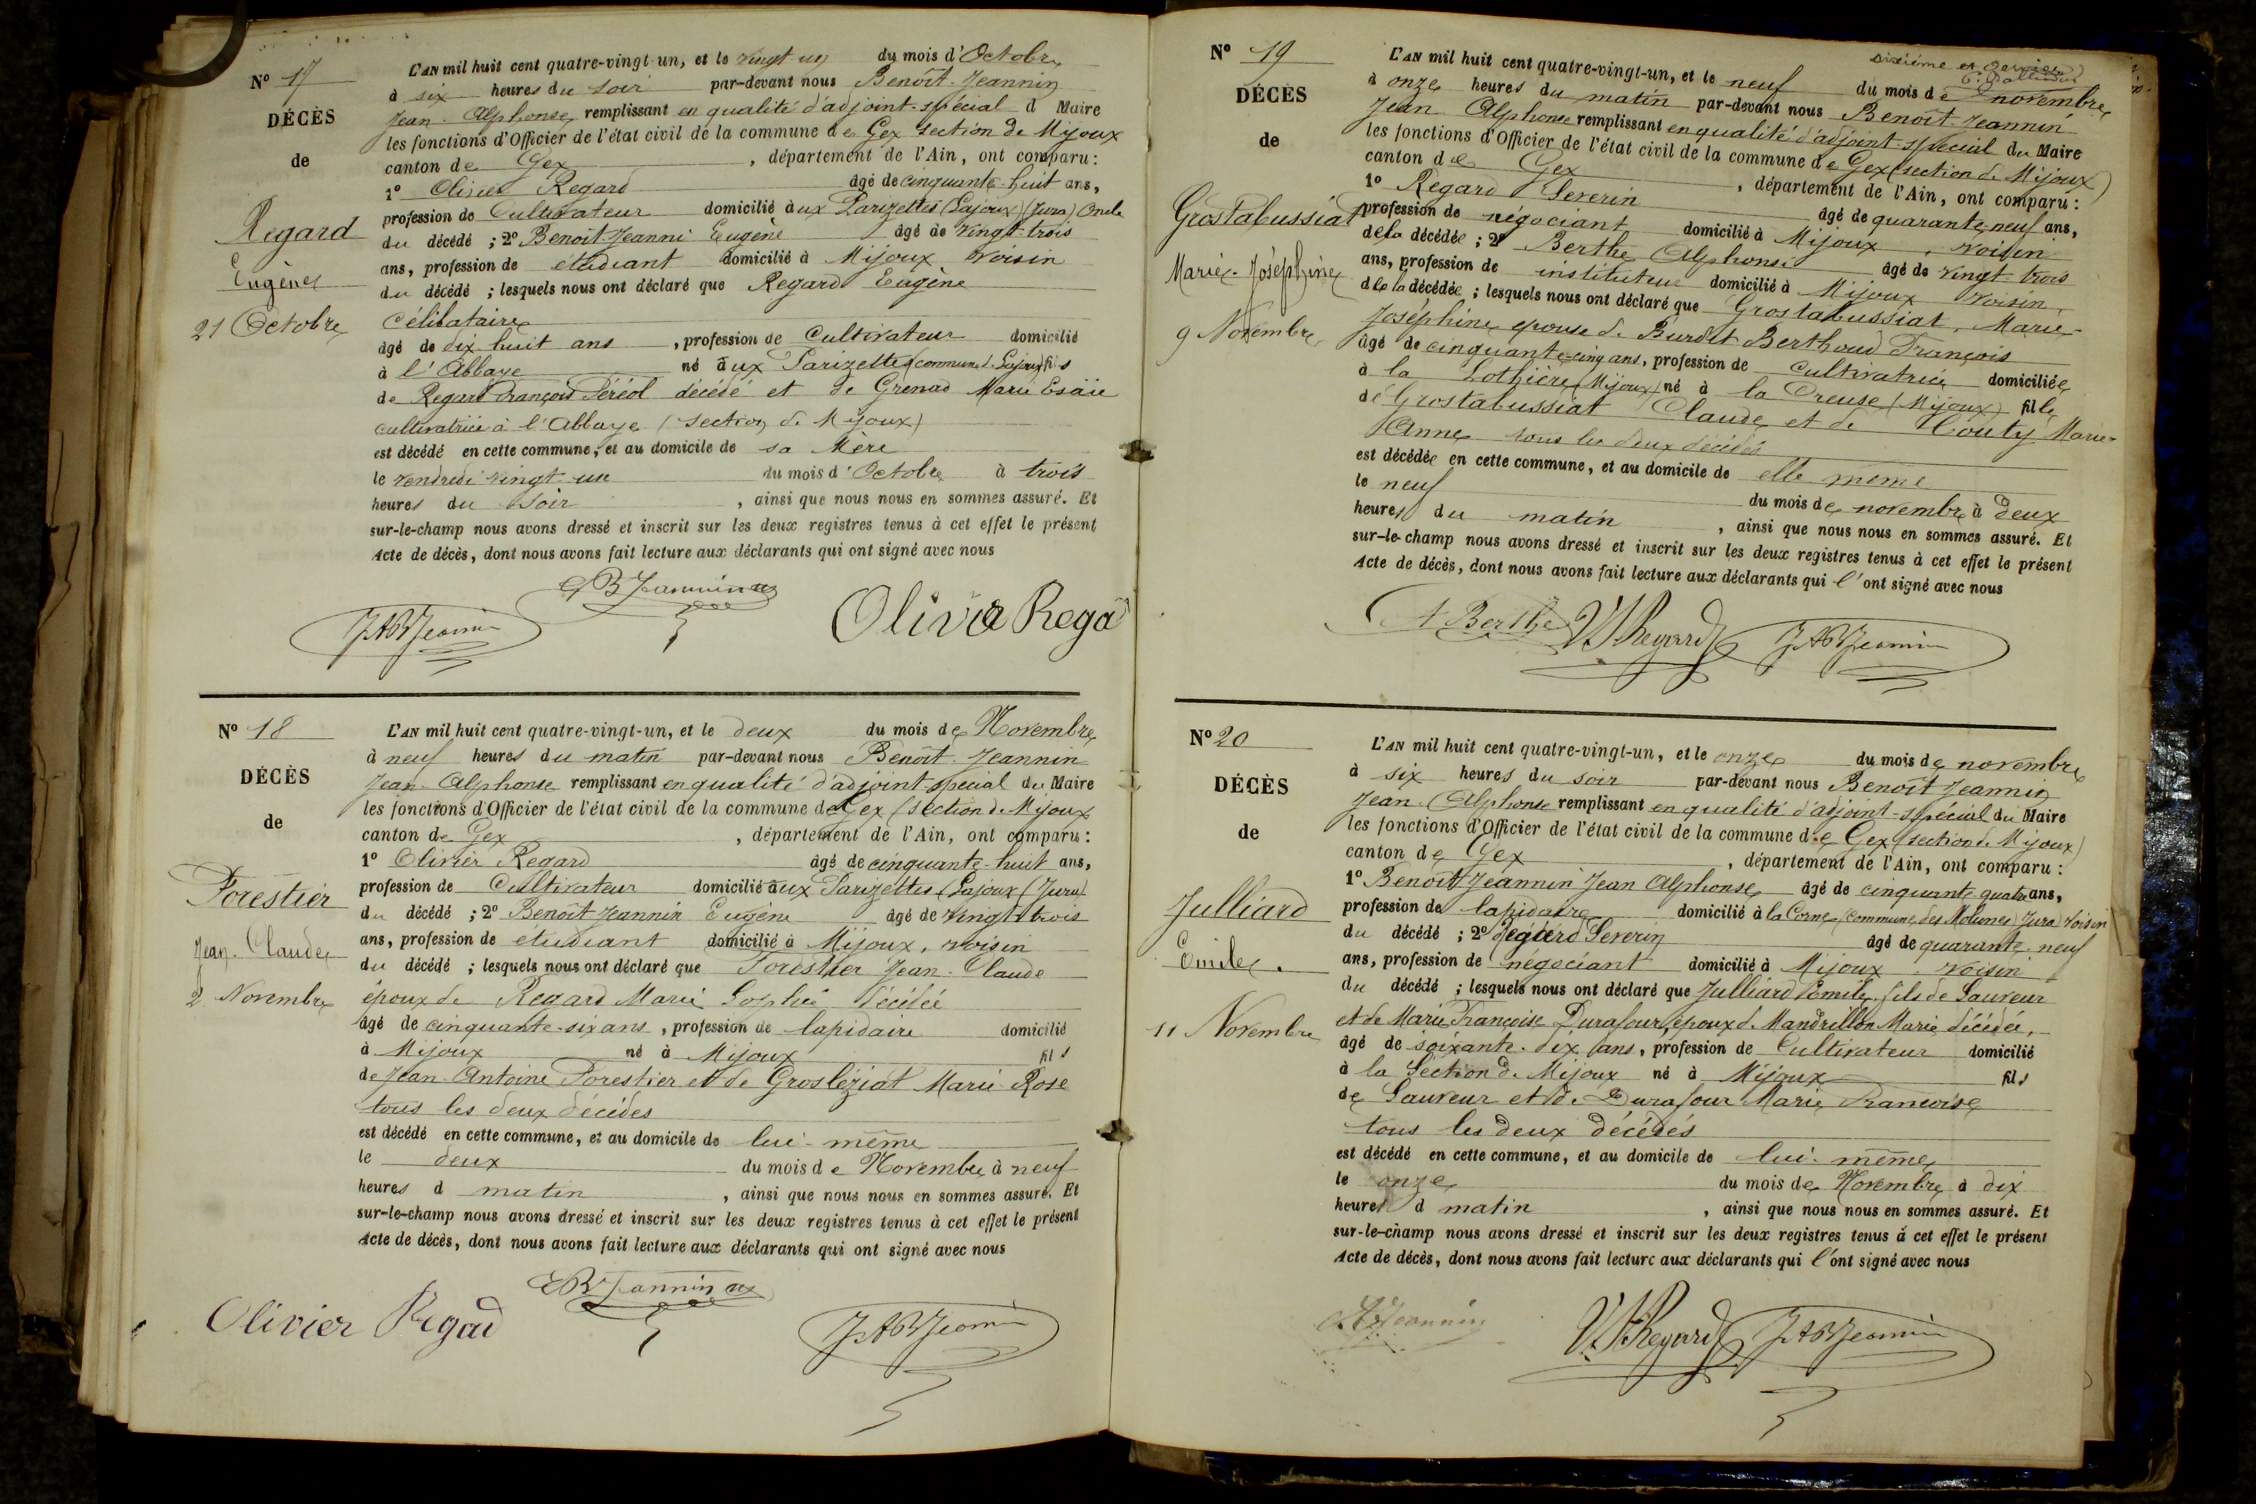 N° 17
DÉCÈS
de
Regard
Eugène
21 Octobre
L'AN mil huit cent quatre-vingt-un, et le vingt un du mois d'Octobre
à six heures du soir par-devant nous Benoît-Jeannin
Jean-Alphonse, remplissant en qualité d'adjoint-spécial d Maire
les fonctions d'Officier de l'état civil de la commune de Gex section de Mijoux
canton de Gex , département de l'Ain, ont comparu :
1° Olivier Regard âgé de cinquante-huit ans,
profession de Cultivateur domicilié aux Parizettes (Lajoux) (Jura) Oncle
du décédé ; 2° Benoît-Jeanni Eugène âgé de vingt-trois
ans, profession de étudiant domicilié à Mijoux voisin
du décédé ; lesquels nous ont déclaré que Regard Eugène
Célibataire
âgé de dix huit ans , profession de Cultivateur domicilié
à l'Abbaye né aux Parizettes (commune d. Lajoux) fils
de Regard François Péréol décédé et de Grenad Marie Esäie
cultivatrice à l'Abbaye (section de Mijoux)
est décédé en cette commune, et au domicile de sa Mère
le vendredi vingt-un du mois d'Octobre à trois
heures du soir , ainsi que nous nous en sommes assuré. Et
sur-le-champ nous avons dressé et inscrit sur les deux registres tenus à cet effet le présent
Acte de décès, dont nous avons fait lecture aux déclarants qui ont signé avec nous
EBJeannin
JABJeannin
Olivie Rega
N° 18
DÉCÈS
de
Forestier
Jean-Claude
2 Novembre
L'AN mil huit cent quatre-vingt-un, et le deux du mois de Novembre
à neuf heures du matin par-devant nous Benoît-Jeannin
Jean-Alphonse remplissant en qualité d'adjoint-spécial du Maire
les fonctions d'Officier de l'état civil de la commune de Gex (section d. Mijoux
canton de Gex , département de l'Ain, ont comparu :
1° Olivier Regard âgé de cinquante-huit ans,
profession de Cultivateur domicilié aux Parizettes (Lajoux (Jura)
du décédé ; 2° Benoît-Jeannin Eugène âgé de vingt-trois
ans, profession de étudiant domicilié à Mijoux, voisin
du décédé ; lesquels nous ont déclaré que Forestier Jean-Claude
époux de Regard Marie Sophie décédée
âgé de cinquante-six ans , profession de lapidaire domicilié
à Mijoux né à Mijoux fils
de Jean-Antoine Forestier et de Grosléziat Marie-Rose
tous les deux décédes
est décédé en cette commune, et au domicile de lui-même
le deux du mois de Novembre à neuf
heures d matin , ainsi que nous nous en sommes assuré. Et
sur-le-champ nous avons dressé et inscrit sur les deux registres tenus à cet effet le présent
Acte de décès, dont nous avons fait lecture aux déclarants qui ont signé avec nous
Olivier Regad
EBJeannin
JABJeannin
sixième et dernier
N° 19
DÉCÈS
de
Grostabussiat
Marie-Joséphine
9 Novembre
L'AN mil huit cent quatre-vingt-un, et le neuf du mois de novembre
à onze heures du matin par-devant nous Benoît-Jeannin
Jean Alphonse remplissant en qualité d'adjoint-spécial du Maire
les fonctions d'Officier de l'état civil de la commune de Gex (section d. Mijoux)
canton de Gex , département de l'Ain, ont comparu :
1° Regard Severin âgé de quarante-neuf ans,
profession de négociant domicilié à Mijoux, voisin
de la décédée ; 2° Berthe Alphonse âgé de vingt-trois
ans, profession de instituteur domicilié à Mijoux voisin,
de la décédée ; lesquels nous ont déclaré que Grostabussiat, Marie-
Joséphine, épouse d. Burdet Berthoud François
âgé de cinquante-cinq ans, profession de Cultivatrice domiciliée
à la Lothière (Mijoux) né à la Creuse (Mijoux) fille
de Grostabussiat Claude et de Couty Marie-
Anne tous les deux décédés
est décédée en cette commune, et au domicile de elle même
le neuf du mois de novembre à deux
heures du matin , ainsi que nous nous en sommes assuré. Et
sur-le-champ nous avons dressé et inscrit sur les deux registres tenus à cet effet le présent
Acte de décès, dont nous avons fait lecture aux déclarants qui l'ont signé avec nous
A Berthe
VSRegard
JABJeannin
N° 20
DÉCÈS
de
Julliard
Emile.
11 Novembre
L'AN mil huit cent quatre-vingt-un, et le onze du mois de novembre
à six heures du soir par-devant nous Benoît Jeannin
Jean-Alphonse remplissant en qualité d'adjoint-spécial du Maire
les fonctions d'Officier de l'état civil de la commune de Gex (section d. Mijoux)
canton de Gex , département de l'Ain, ont comparu :
1° Benoît Jeannin Jean Alphonse âgé de cinquante quatre ans,
profession de lapidaire domicilié à la Corne (commune des Molunes) Jura voisin
du décédé ; 2° Regard Severin âgé de quarante neuf
ans, profession de négociant domicilié à Mijoux voisin
du décédé ; lesquels nous ont déclaré que Julliard Emile, fils de Sauveur
et de Marie Françoise Durafour, époux d. Mandrillon Marie décédée,
âgé de soixante-dix ans, profession de Cultivateur domicilié
à la Section d. Mijoux né à Mijoux fils
de Sauveur et d. Durafour Marie Francoise
tous les deux décédés
est décédé en cette commune, et au domicile de lui-même
le onze du mois de Novembre à dix
heures d matin , ainsi que nous nous en sommes assuré. Et
sur-le-champ nous avons dressé et inscrit sur les deux registres tenus à cet effet le présent
Acte de décès, dont nous avons fait lecture aux déclarants qui l'ont signé avec nous
Jeannin
VSRegard
JABJeannin